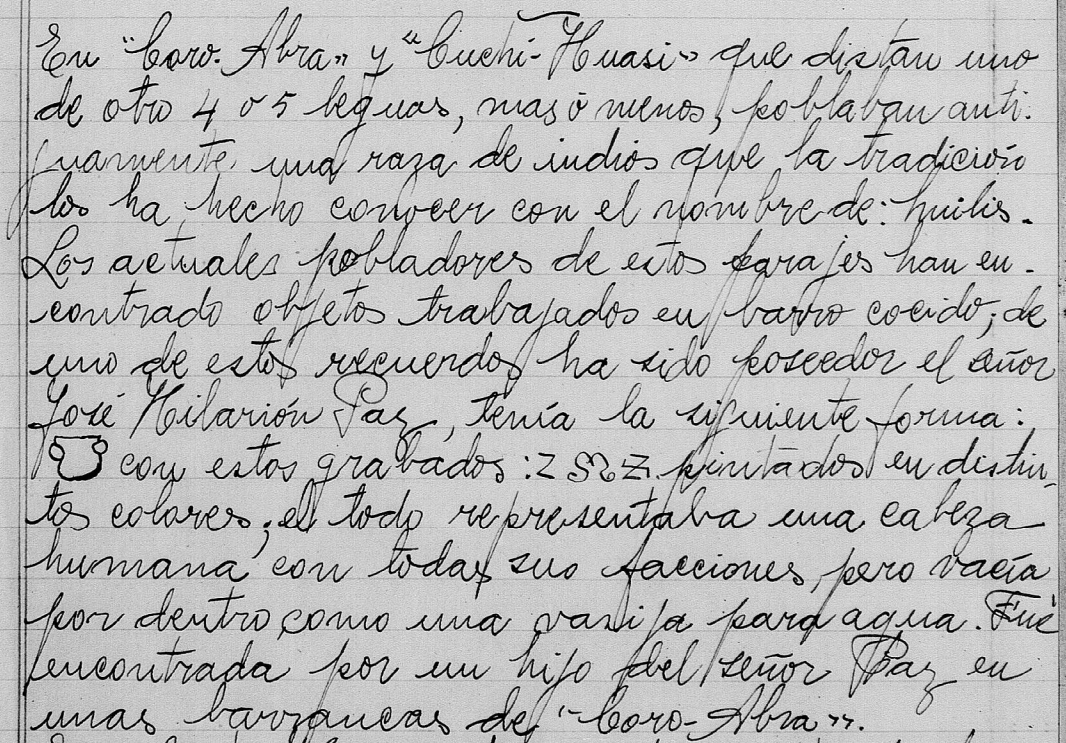 En "Coro-Abra" y "Cuchi-Huasi" que distan uno
de otro 4 o 5 leguas, mas ó menos, poblaban anti-
guamente una raza de indios que la tradición
los ha hecho conocer con el nombre de: huilis.
Los actuales pobladores de estos parajes han en-
contrado objetos trabajados en barro cocido; de
uno de estos recuerdos ha sido poseedor el señor
José Hilarión Paz, tenía la siguiente forma:
con estos grabados: pintados en distin-
tos colores; el todo representaba una cabeza
humana con todas sus facciones, pero vacía
por dentro como una vasija para agua. Fué
encontrada por un hijo del señor Paz en
unas barrancas de "Coro-Abra".